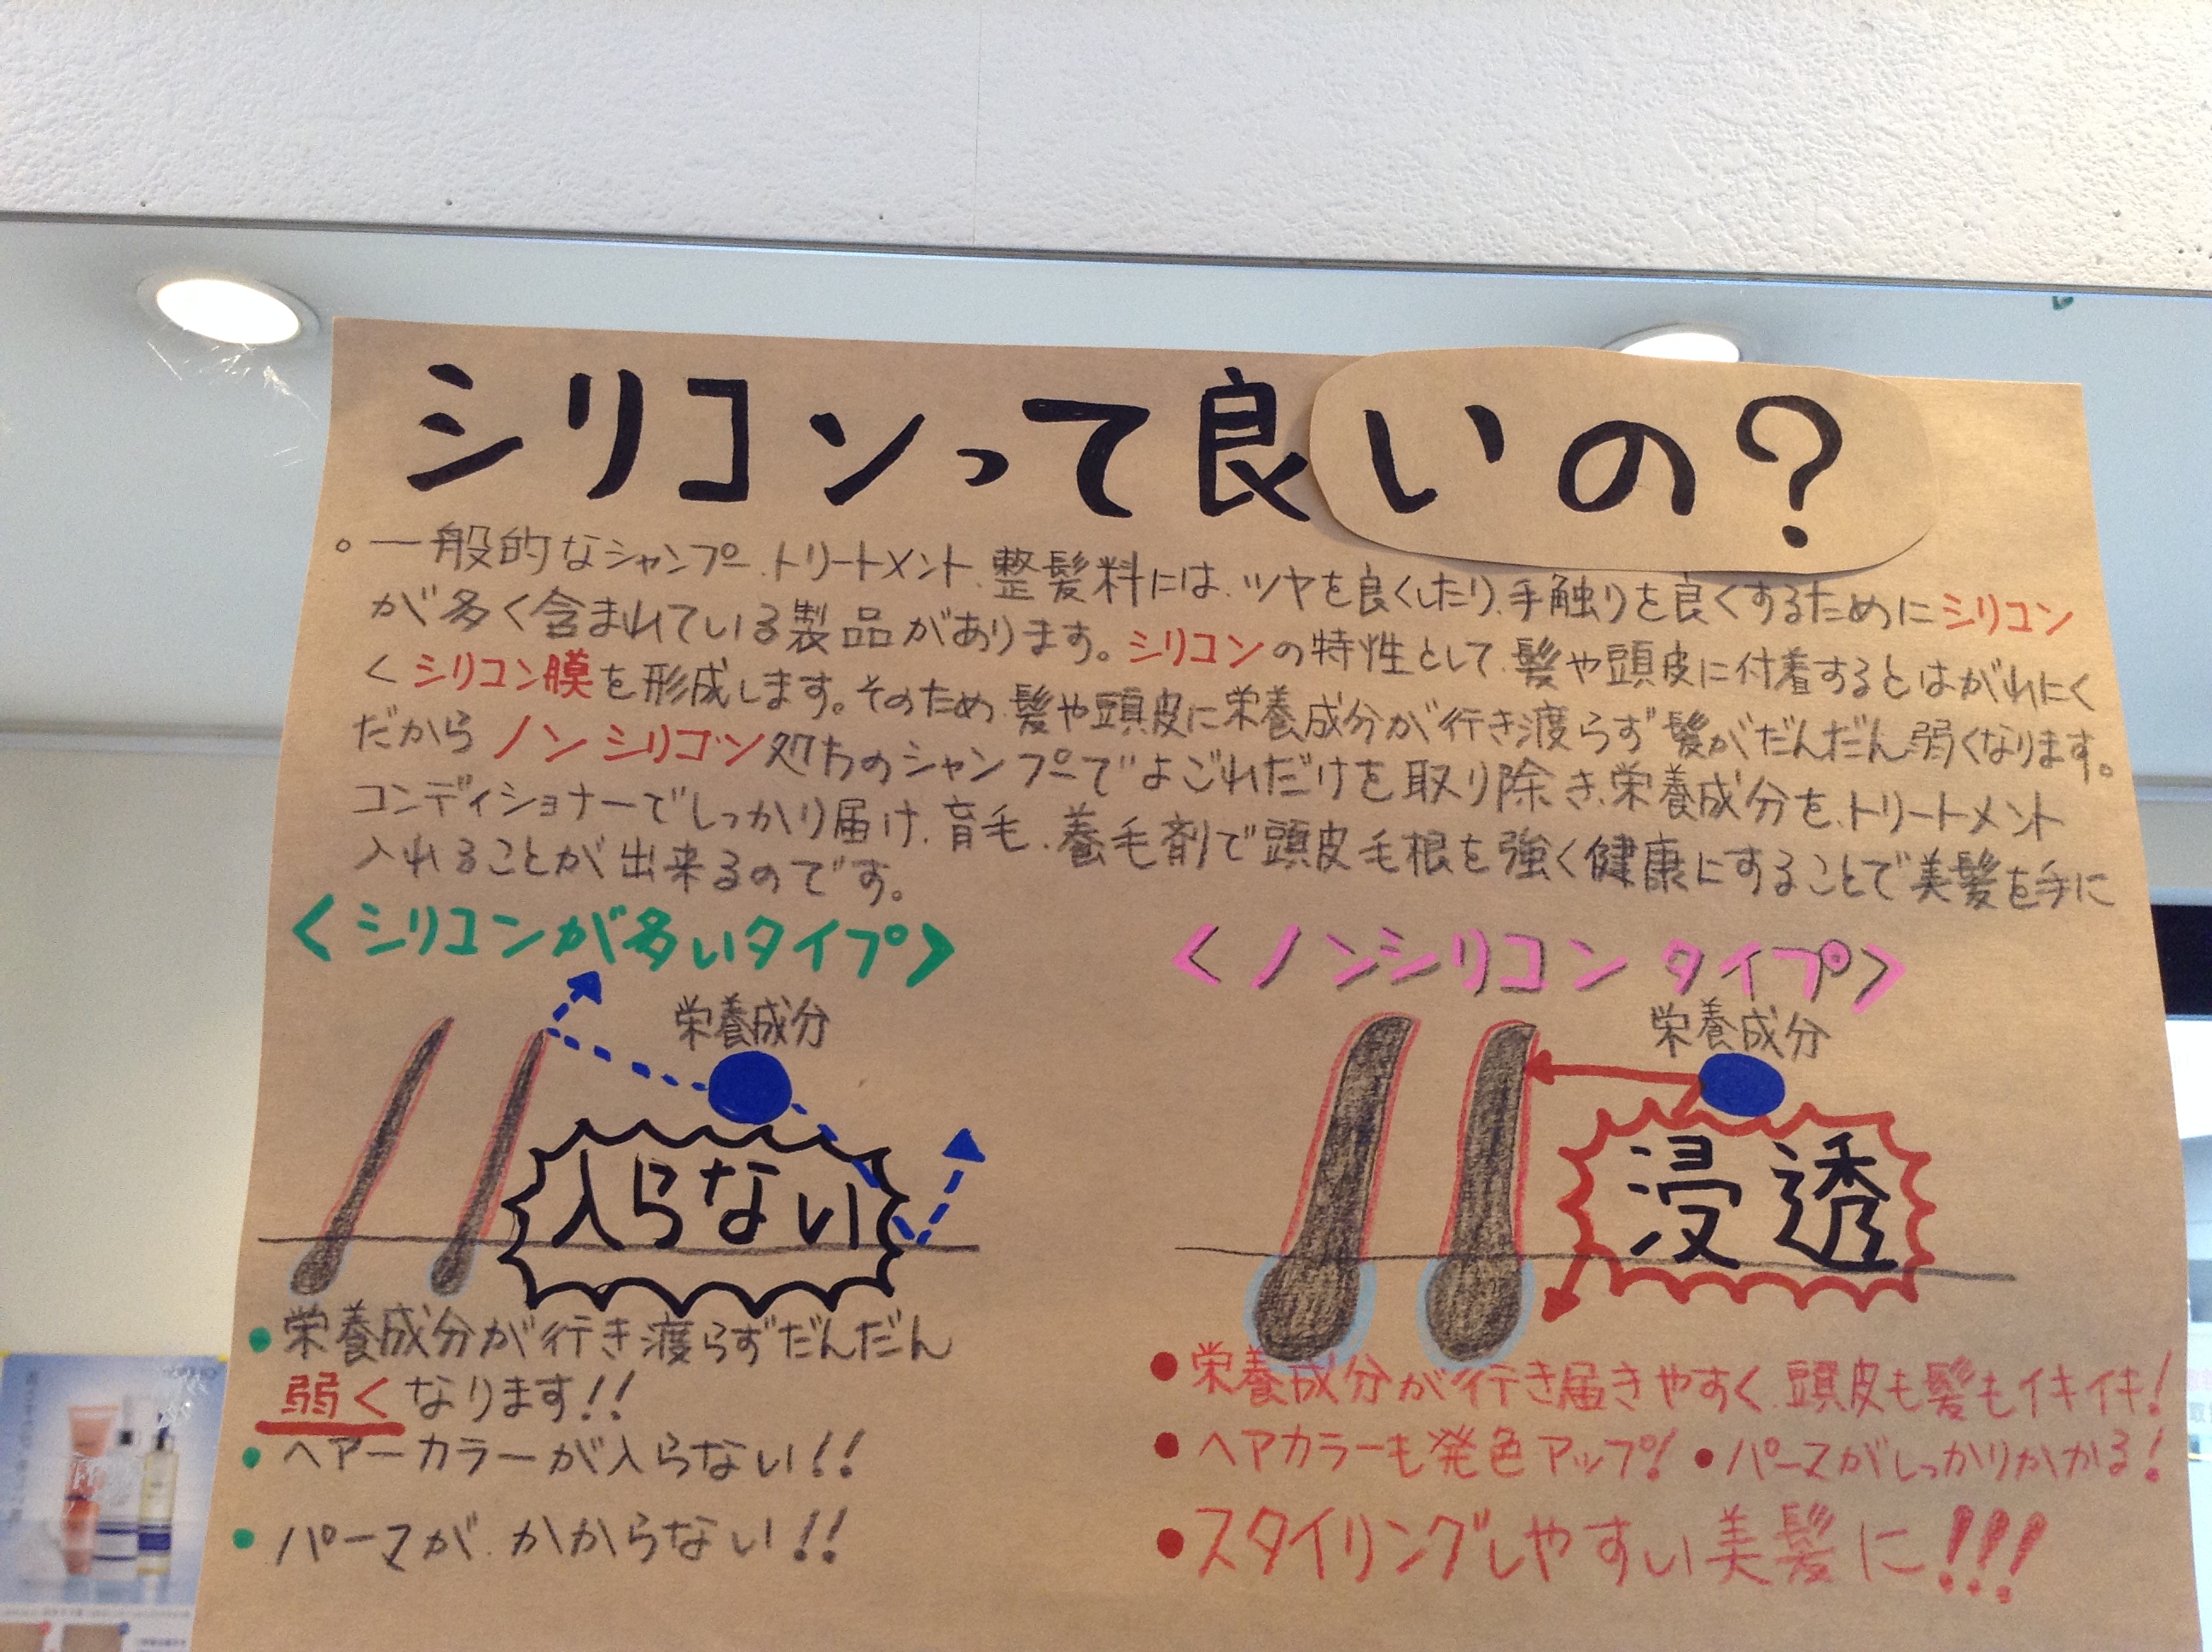 シリコンって良いの?
。一般的なシャンプー、トリートメント、整髪料には、ツヤを良くしたり、手触りを良くするためにシリコン
が多く含まれている製品があります。シリコンの特性として、髪や頭皮に付着するとはがれにく
くシリコン膜を形成します。そのため、髪や頭皮に栄養成分が行き渡らず髪がだんだん弱くなります。
だからノンシリコン処方のシャンプーでよごれだけを取り除き、栄養成分を、トリートメント
コンディショナーでしっかり届け、育毛、養毛剤で頭皮毛根を強く健康にすることで美髪を手に
入れることが出来るのです。
<シリコンが多いタイプ>
栄養成分
入らない
・栄養成分が行き渡らずだんだん
弱くなります!!
・ヘアーカラーが入らない!!
・パーマが、かからない!!
<ノンシリコンタイプ>
栄養成分
浸透
・栄養成分が行き届きやすく、頭皮も髪もイキイキ!
・ヘアカラーも発色アップ! ・パーマがしっかりかかる!
・スタイリングしやすい美髪に!!!